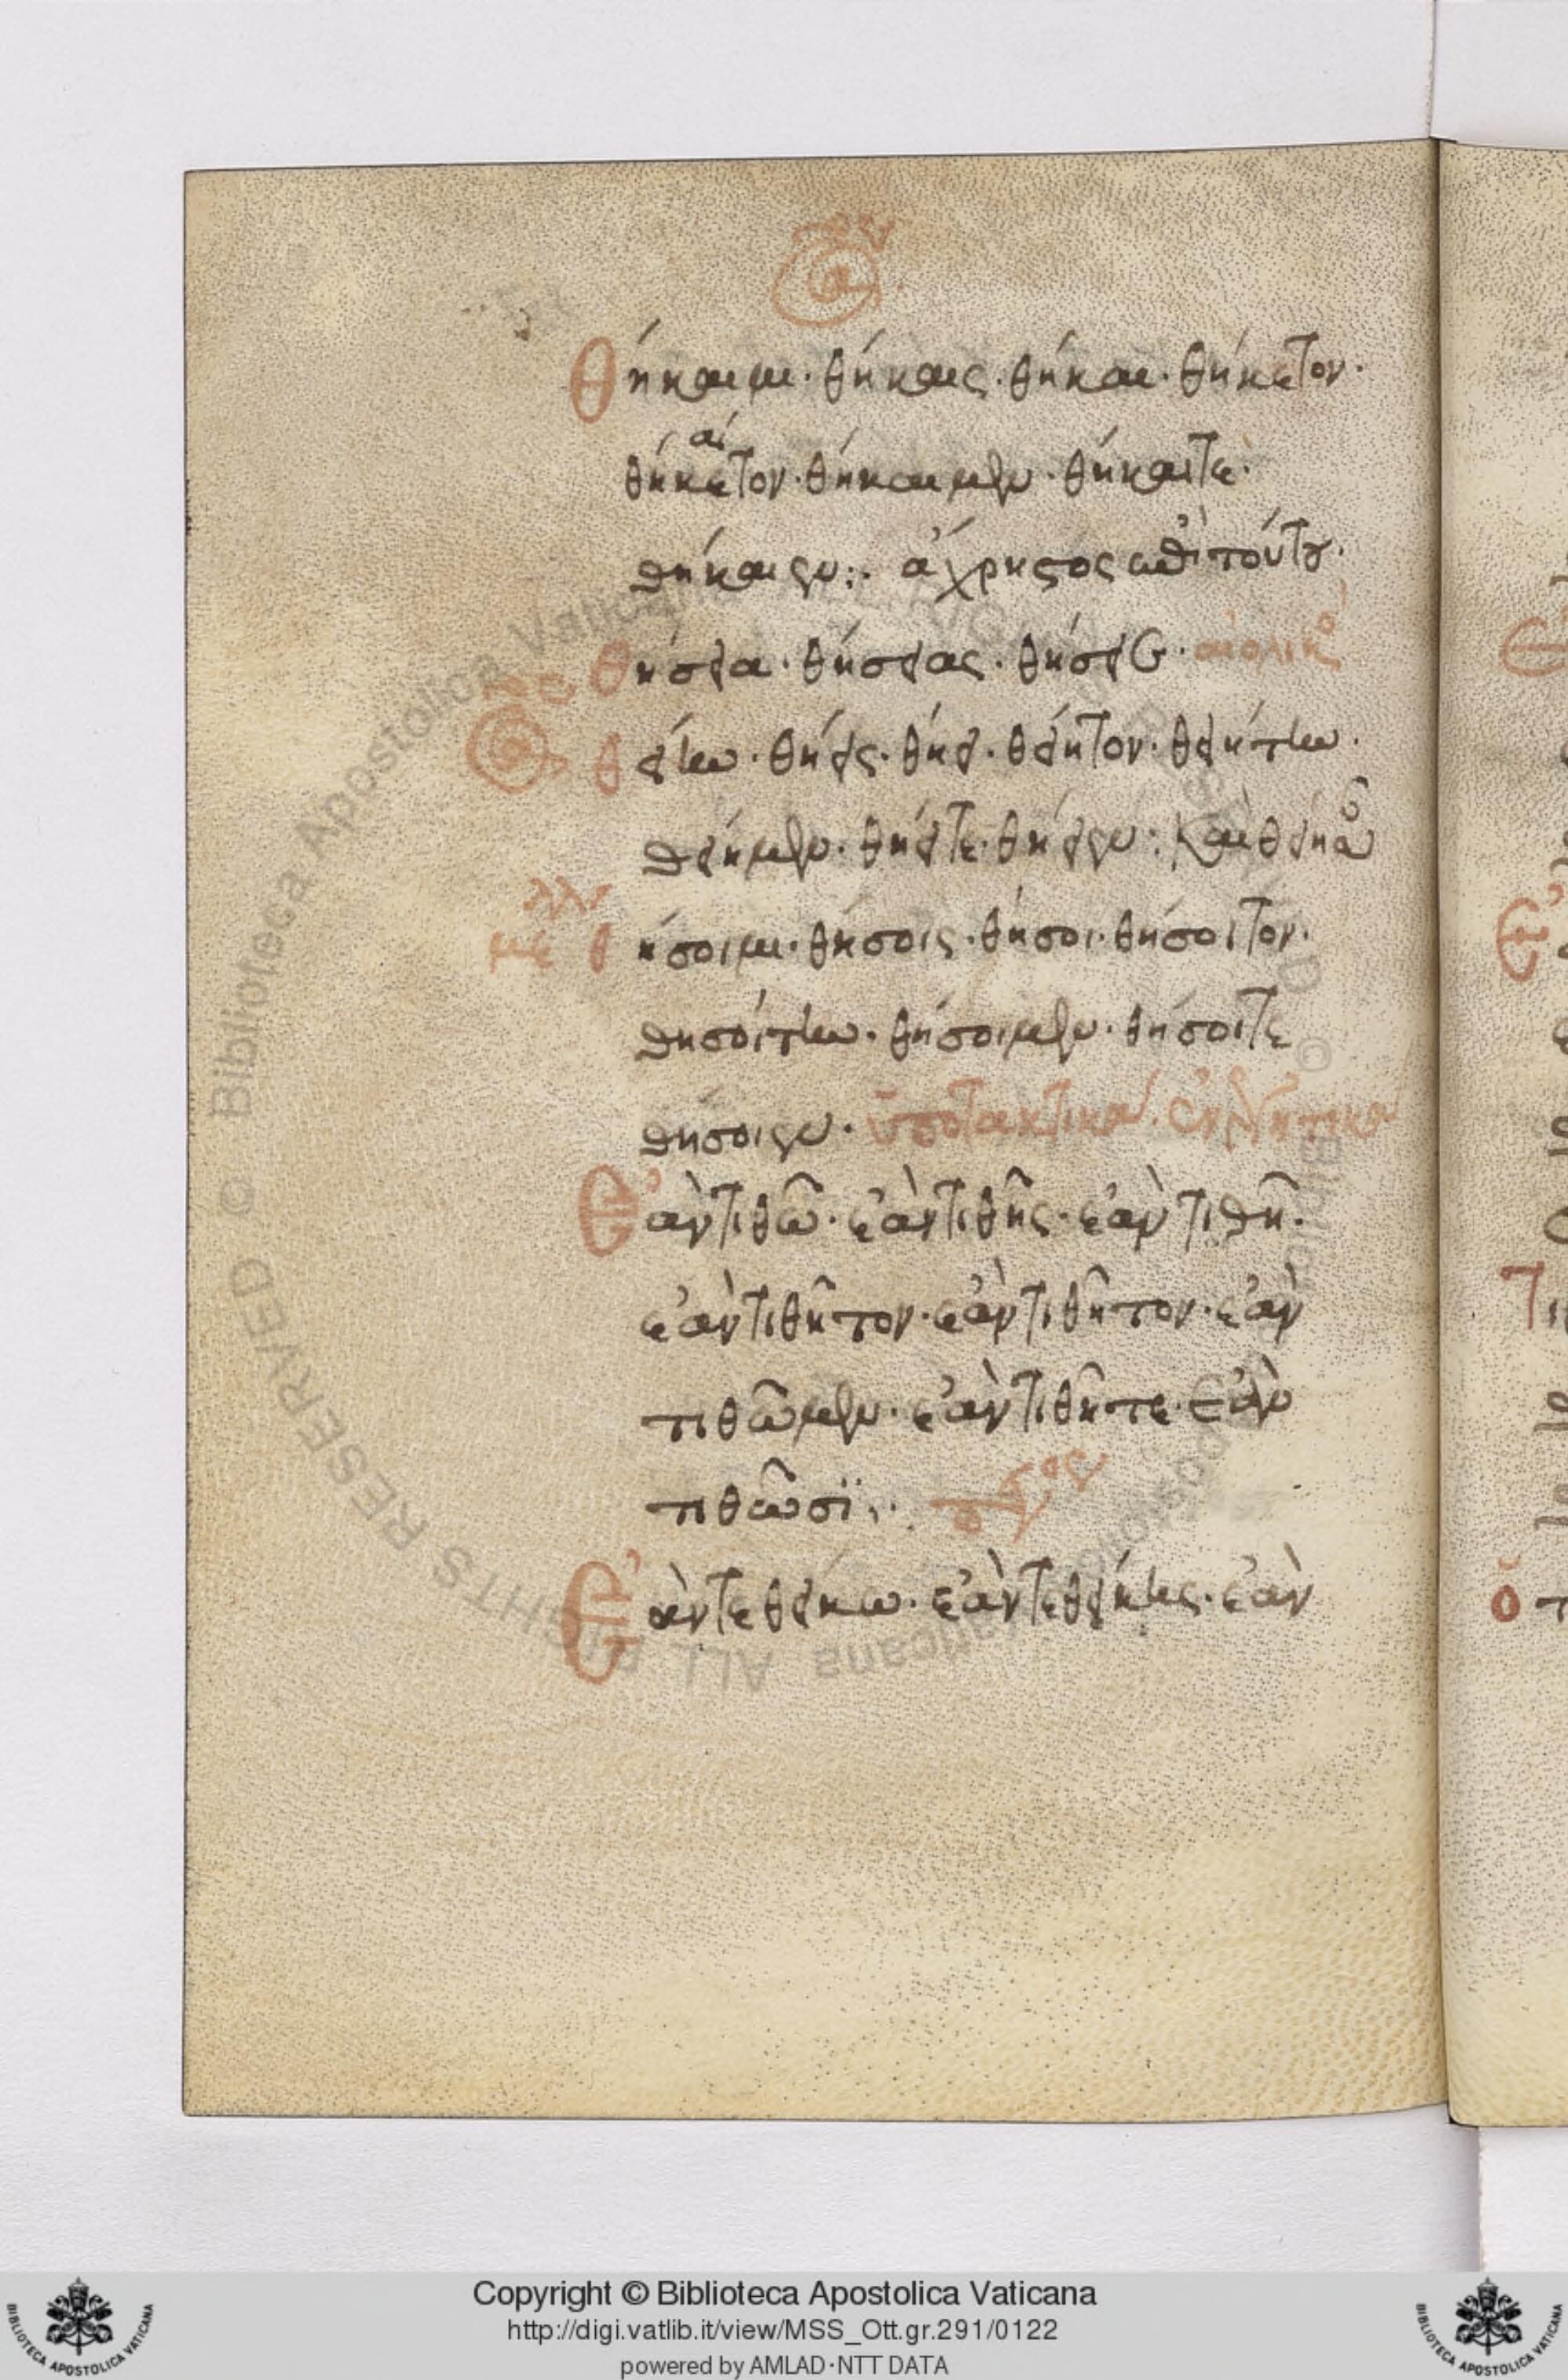 θήκαιμι· θήκαις· θήκαι· θήκετον·
αί
θήκετον· θήκαιμεν· θήκαιτε·
θήκαιεν:· ἄχρηστος
θήσεια· θήσειας· θήσειεν· αἰολικὸ
θείην· θείης· θείη· θείητον· θειήτην·
θείημεν· θείητε· θείησαν: καὶ
θήσοιμι· θήσοις· θήσοι· θήσοιτον·
θησοίτην· θήσοιμεν· θήσοιτε
θήσοιεν· ὑποτακτικά·
Ἐὰν τιθῶ· ἐὰν τιθῆς· ἐὰν τιθῆ·
ἐὰν τιθῆτον· ἐὰν τιθῆτον· ἐὰν
τιθῶμεν· ἐὰν τιθῆτε· ἐὰν
τιθῶσϊ:·
Ἐὰν τεθείκω· ἐὰν τεθείκης· ἐὰν
Copyright © Biblioteca Apostolica Vaticana
http://digi.vatlib.it/view/MSS_Ott.gr.291/0122
powered by AMLAD·NTT DATA